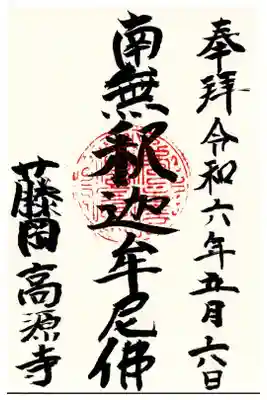 奉拜令和六年五月六日
南無釈迦牟尼佛
藤田高源寺